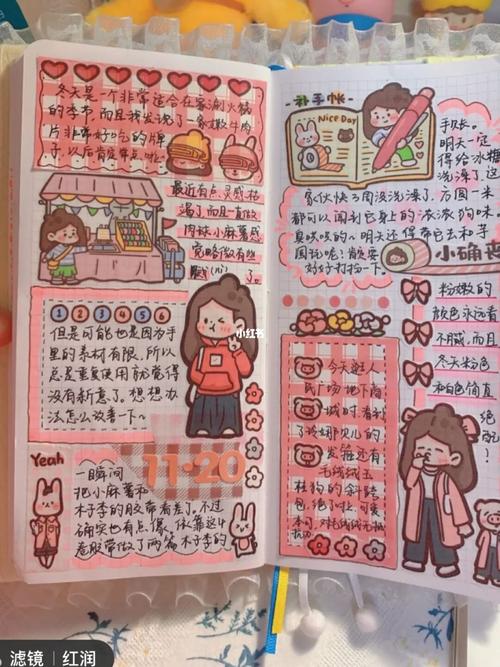 冬天是一个非常适合在家涮火锅
的季节,而且我发现了一家嫩牛肉
片非常好吃的牌
子,以后肯定常点啦
最近有点灵感枯
竭了,而且一直做
肉球小麻薯感
觉略微有些
腻(ni)了。
1 2 3 4 5 6
但是可能也是因为手
里的素材有限,所以
总是重复使用就觉得
没有新意了。想想办
法怎么改善一下~
小红书
Yeah
11·20
一瞬间
把小麻薯和
木子李的胶带看差了。不过
确实也有点像,依靠这4
卷胶带做了两篇木子李的
补手帐
Nice Day
手帐。
明天一定
得给冰糖
洗澡了这
家伙快3周没洗澡了,方圆一米
都可以闻到它身上的浓浓狗味
真哎哎的~明天还得带它去和子
园玩呢!肯定要
好好打扮一下。
小确丧
粉嫩的
颜色永远看
不腻,而且
冬天粉色
和白色简直
绝
配!
今天逛人
民广场地下商
城时,看到
了玲娜贝儿的
发箍还有
毛绒绒玉
桂狗的斜挎
包,绝了吐,可爱
本可,对毛绒绒无抵
抗力
滤镜 | 红润